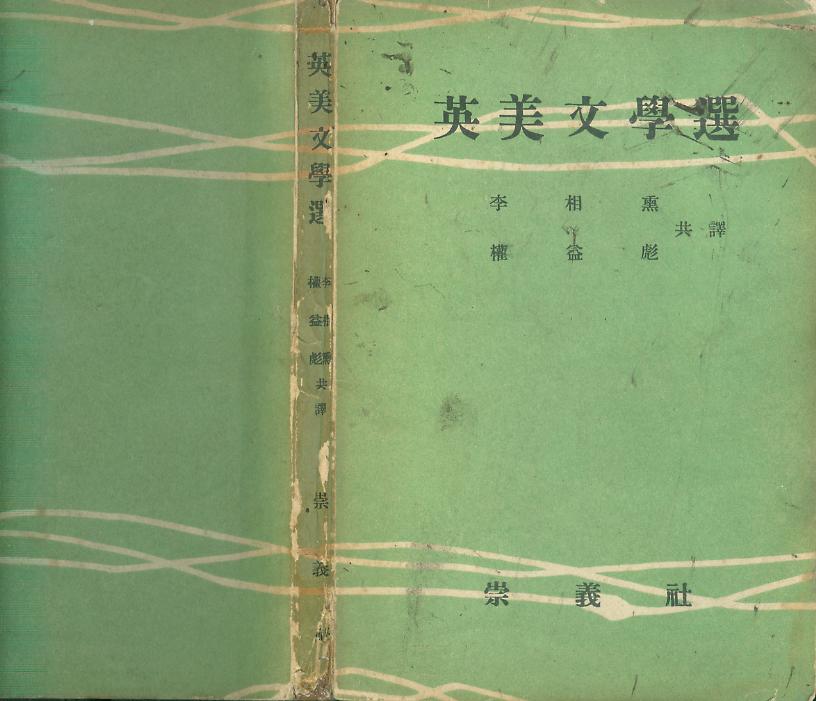 英美文學選
李相熏
權益彪
共譯
崇義社
英美文學選
李相熏
權益彪
共譯
崇義社